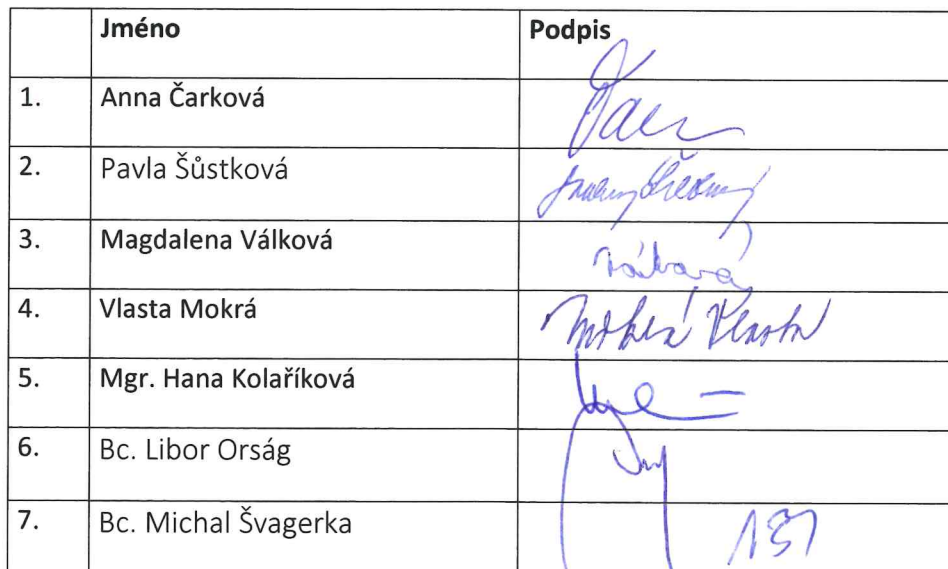 Jméno Podpis
1. Anna Čarková
2. Pavla Šůstková
3. Magdalena Válková
4. Vlasta Mokrá Mokrá Vlasta
5. Mgr. Hana Kolaříková
6. Bc. Libor Orság
7. Bc. Michal Švagerka